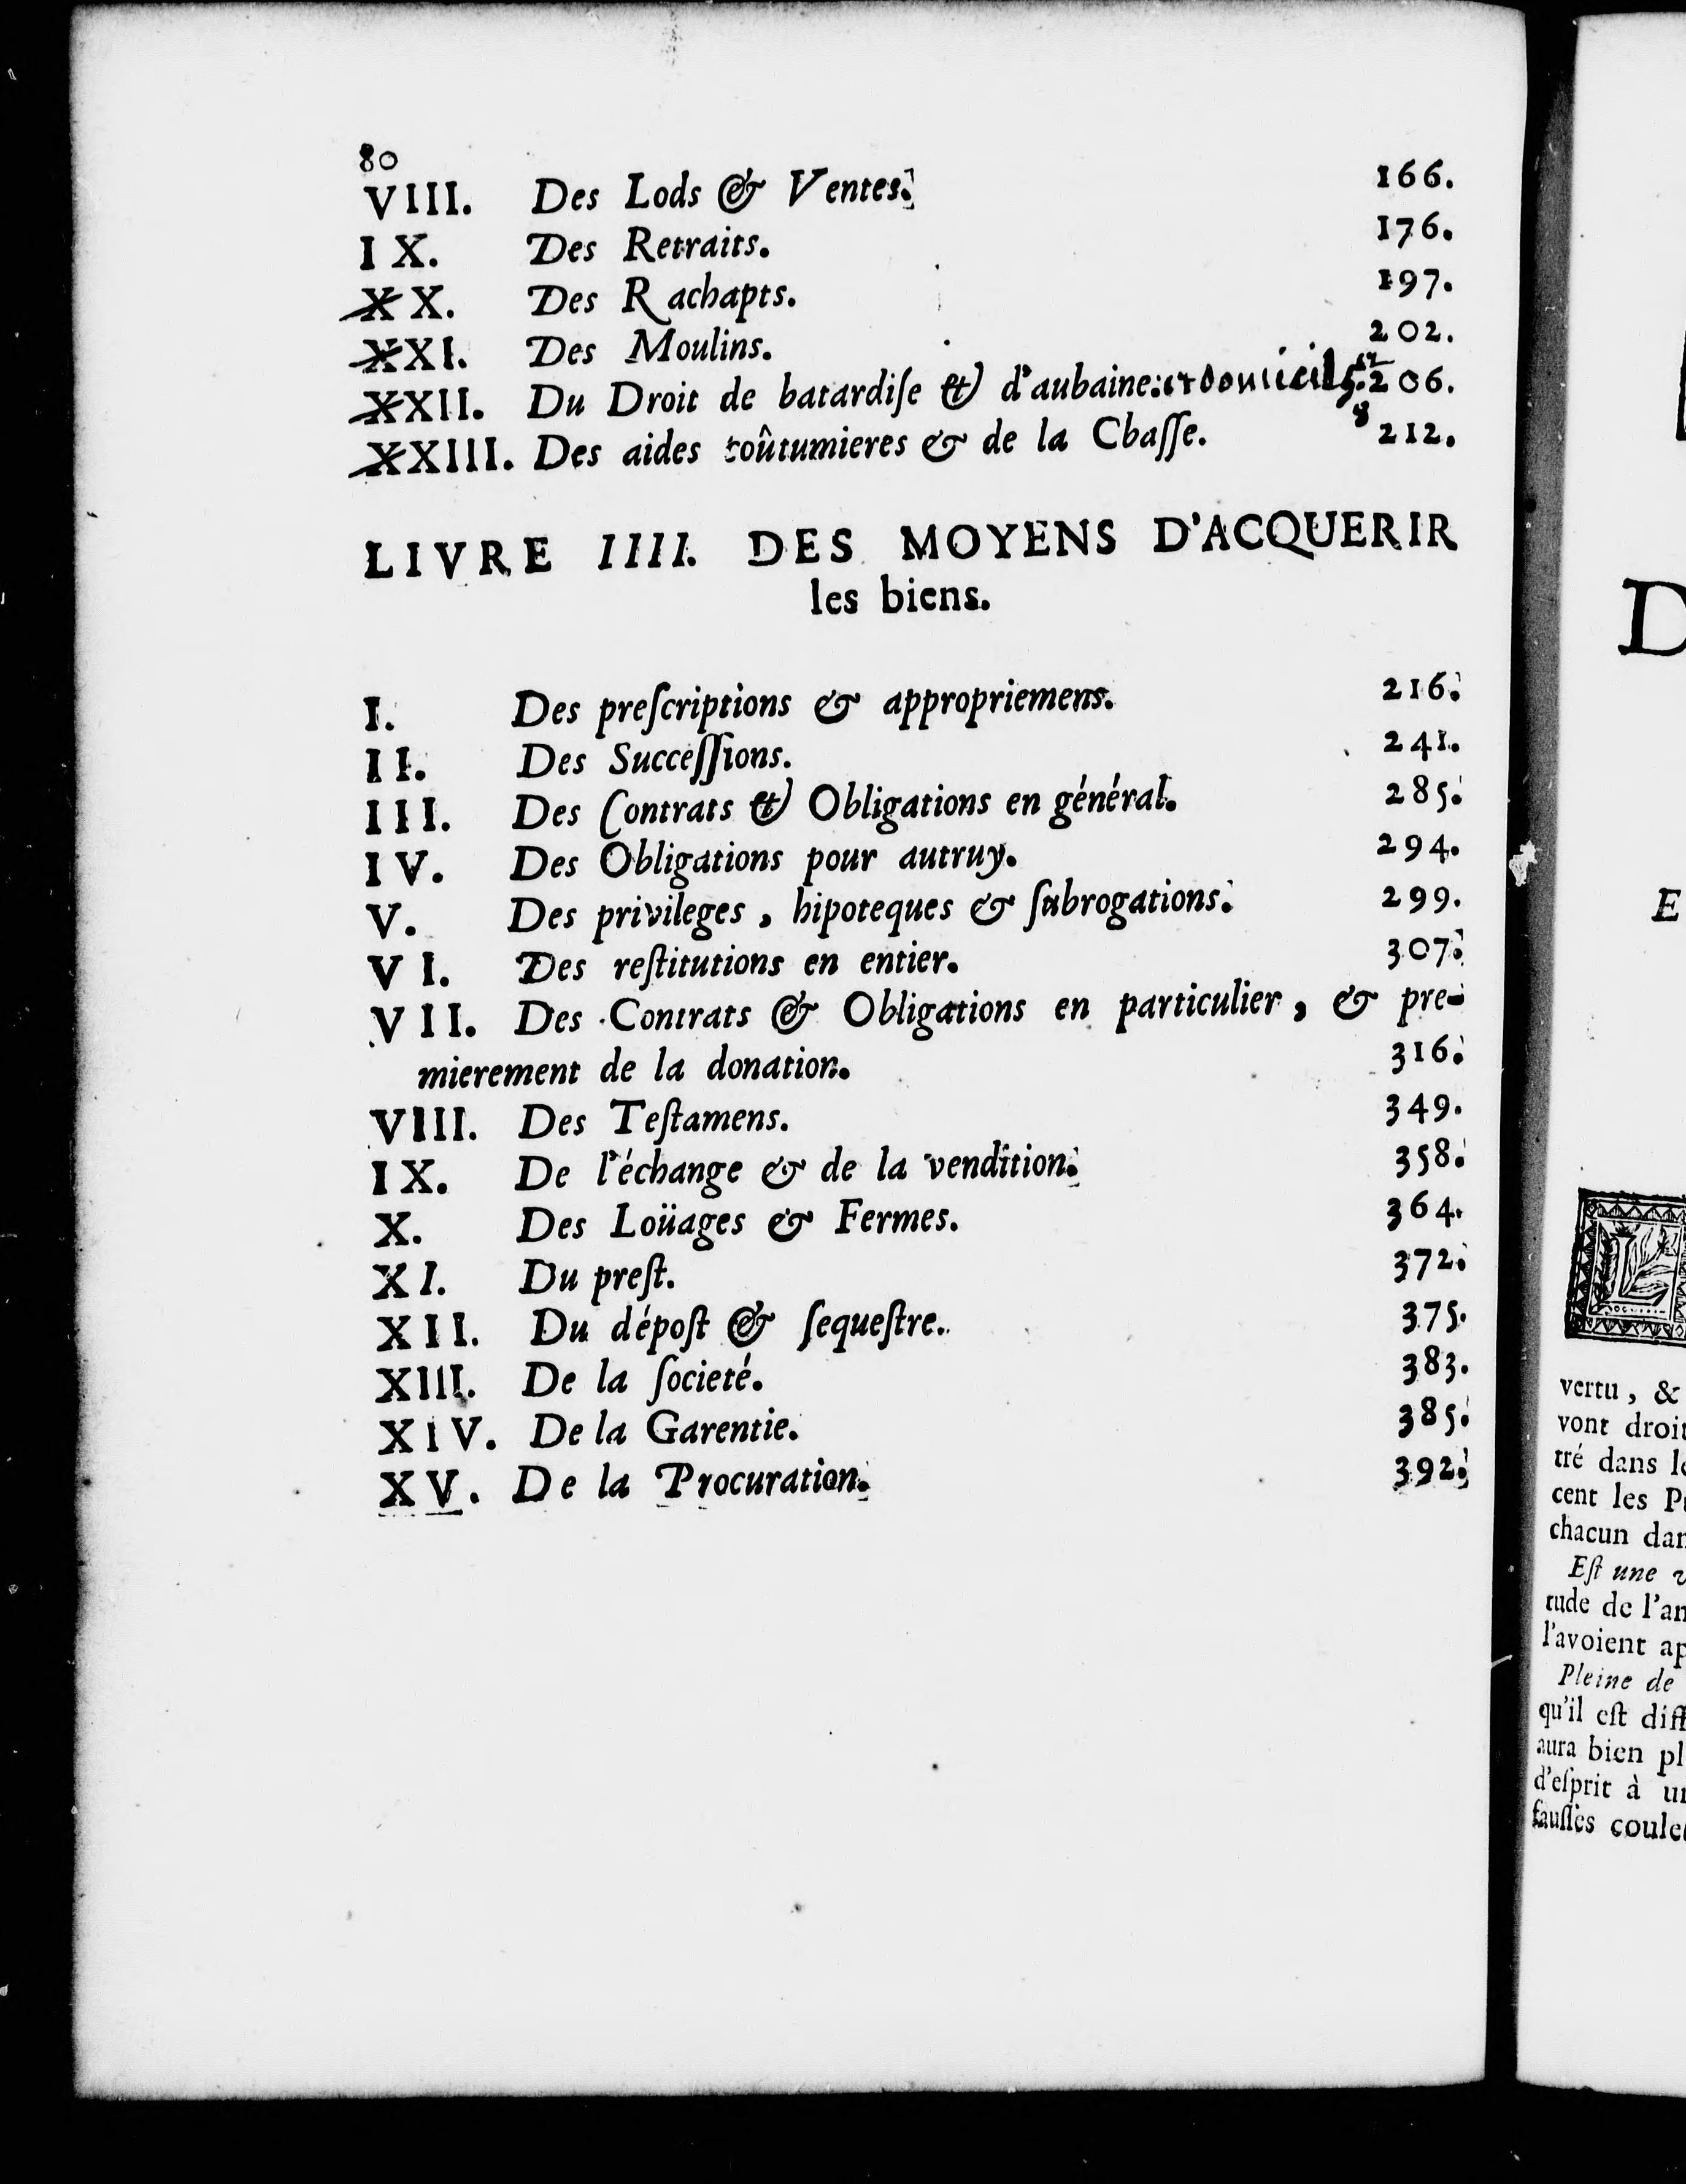 80
VIII. Des Lods & Ventes. 166.
IX. Des Retraits. 176.
XX. Des Rachapts. 197.
XXI. Des Moulins. 202.
XXII. Du Droit de batardiſe & d'aubaine. 206.
XXIII. Des aides coûtumieres & de la Chaſſe. 212.
LIVRE IIII. DES MOYENS D'ACQUERIR
les biens.
I. Des preſcriptions & appropriemens. 216.
II. Des Succeſſions. 241.
III. Des Contrats & Obligations en général. 285.
IV. Des Obligations pour autruy. 294.
V. Des privileges, hipoteques & ſubrogations. 299.
VI. Des reſtitutions en entier. 307.
VII. Des Contrats & Obligations en particulier, & pre-
mierement de la donation. 316.
VIII. Des Teſtamens. 349.
IX. De l'échange & de la vendition. 358.
X. Des Loüages & Fermes. 364.
XI. Du preſt. 372.
XII. Du dépoſt & ſequeſtre. 375.
XIII. De la ſocieté. 383.
XIV. De la Garentie. 385.
XV. De la Procuration. 392.
D
E
L
vertu, &
vont droit
tré dans
cent les
chacun
Eſt une
tude de
l'avoient
Pleine de
qu'il eſt
aura bien
d'eſprit à
fauſſes